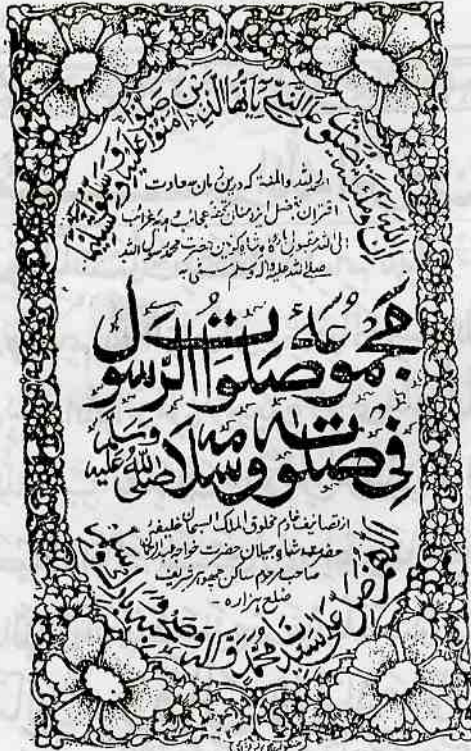 ان الله وملئكته يصلون على النبي يايها الذين امنوا صلوا عليه وسلموا تسليما
الحمد لله والمنة که درین زمان سعادت
اقتران بفضل ایزد منان تحفه عجائب و هدیه غرائب
پناه کونین حضرت محمد رسول الله
صلے الله علیه واله وسلم مسمی به
مجموعه صلوات الرسول
فی صلوته وسلامه صلی الله علیه وسلم
از تصانیف خادم مخلوق الملک السبحان خلیفه
شاه جیلان حضرت خواجه عبدالرحمن
صاحب مرحوم ساکن چھوہر شریف
ضلع ہزارہ -
اللهم صل على سیدنا محمد واله وصحبه وبارک وسلم